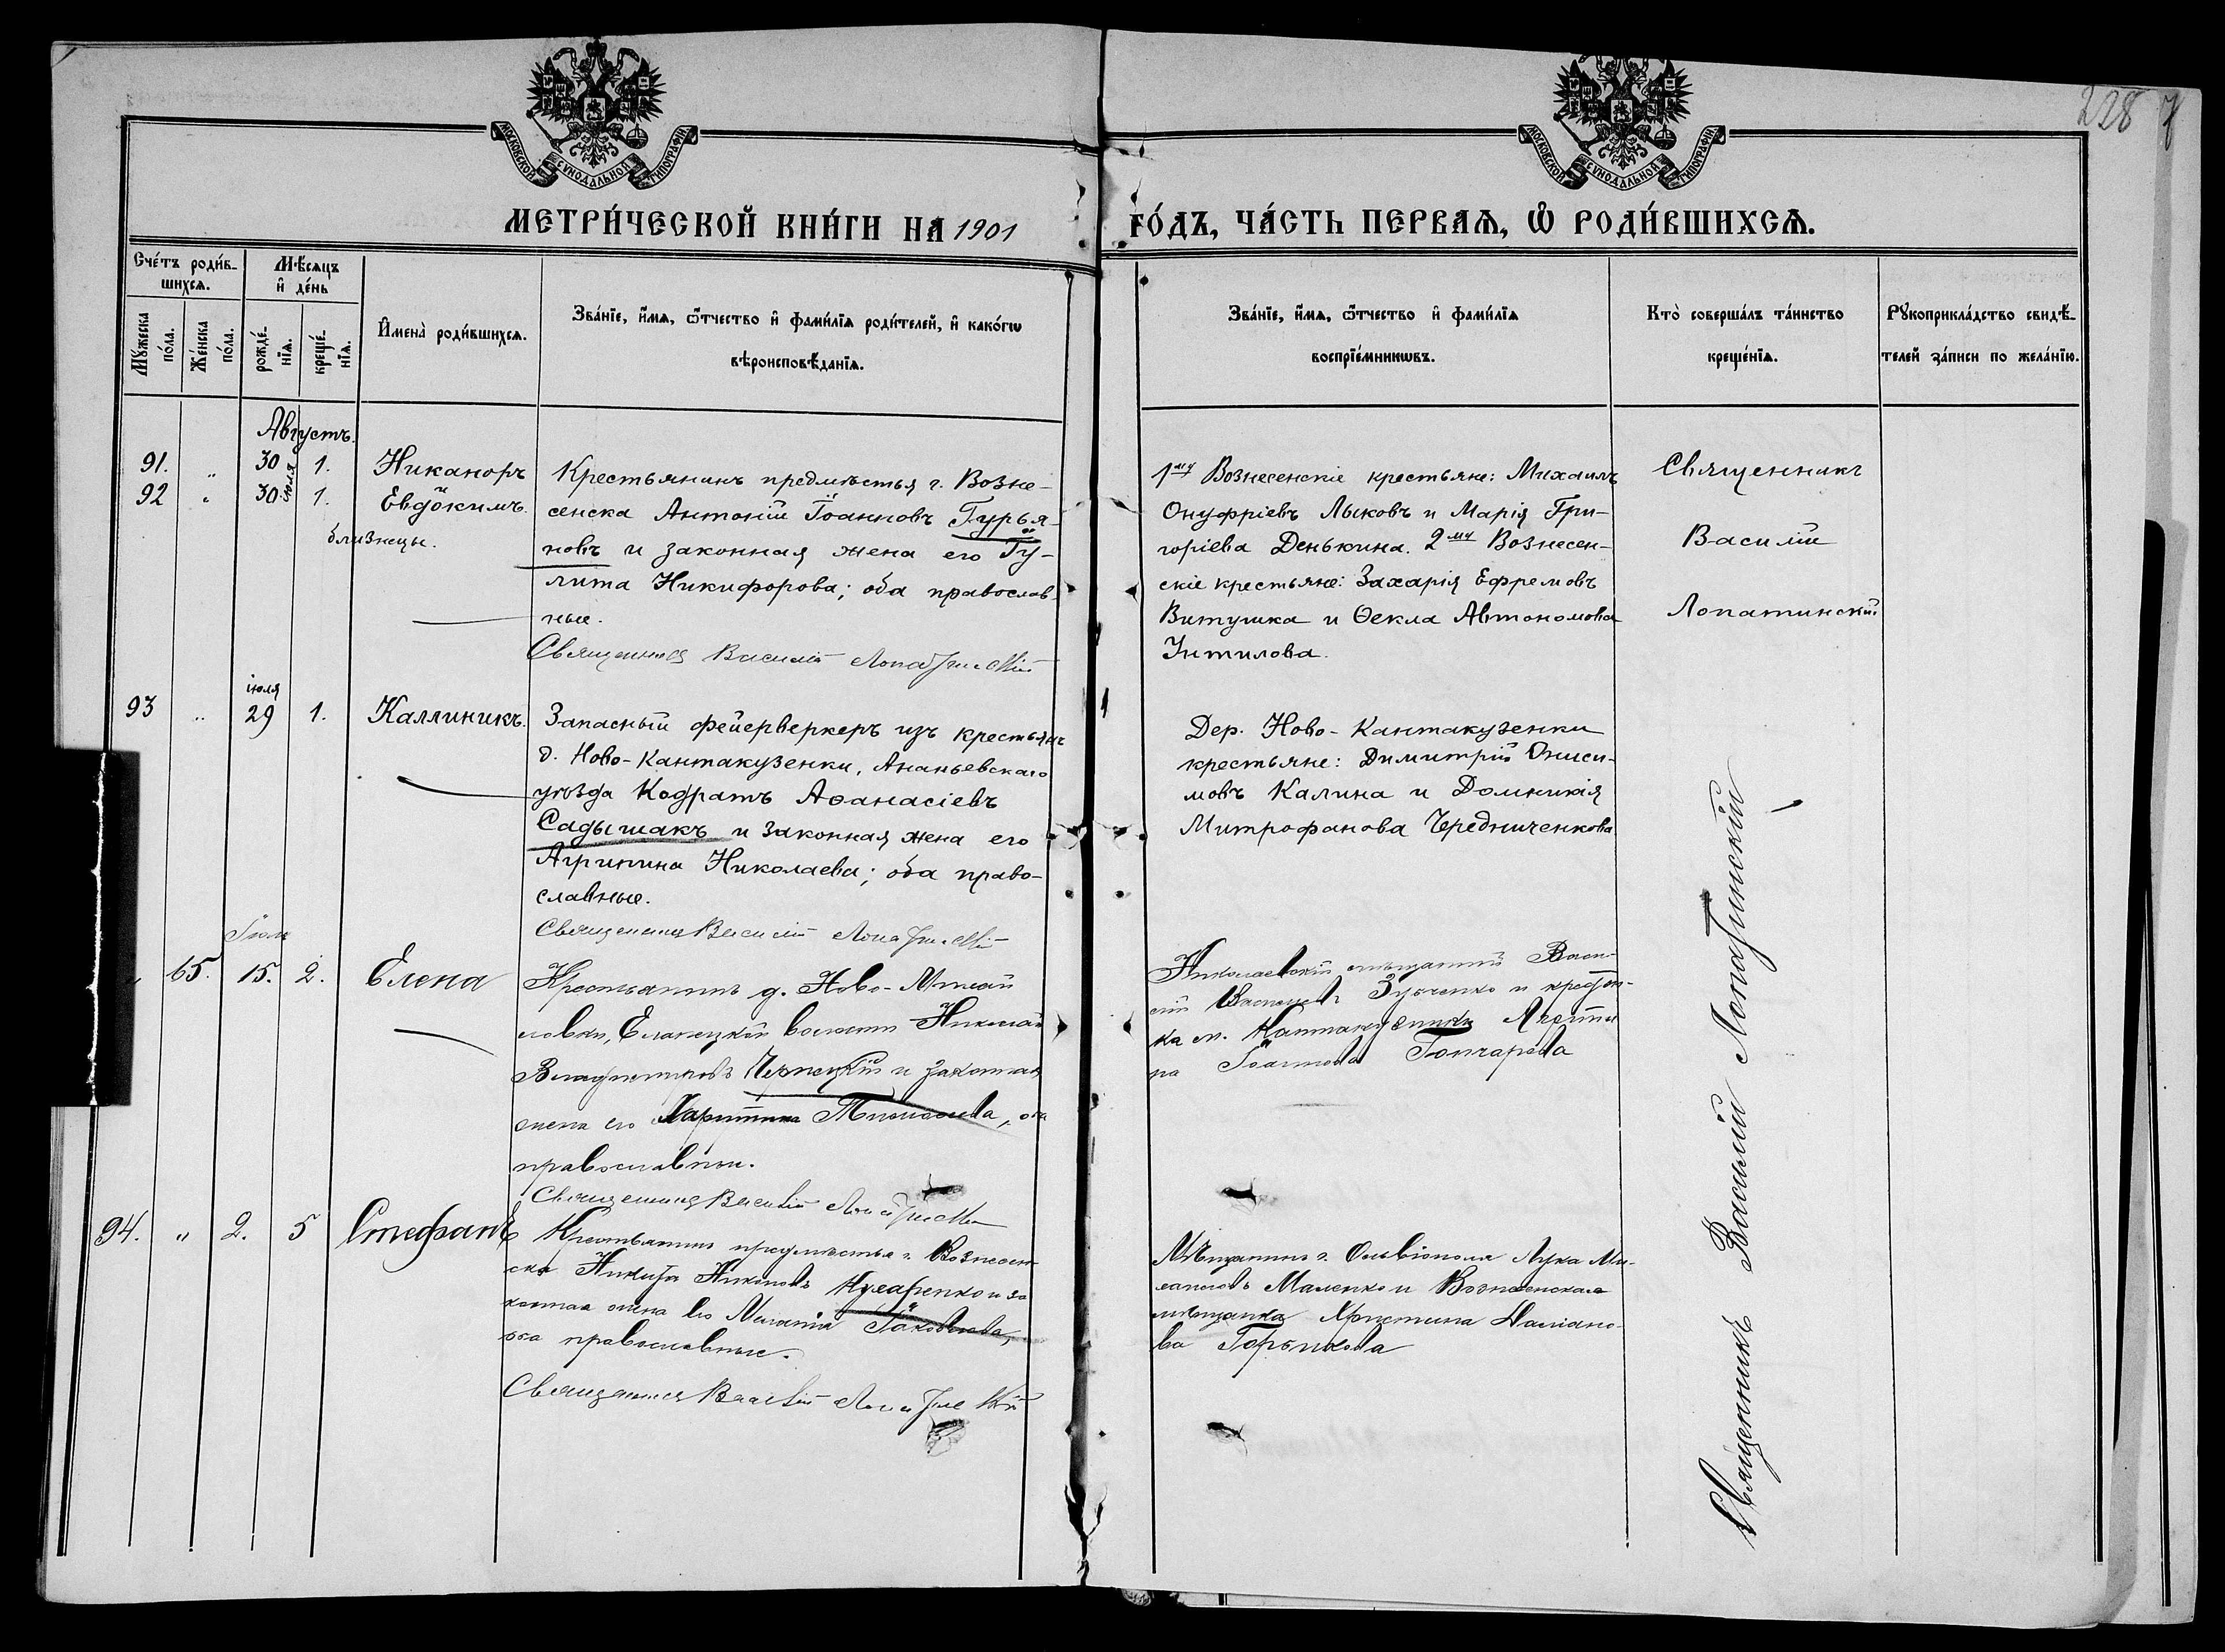 228
МОСКОВСКОЙ СѴНОДАЛЬНОЙ ТИПОГРАФІИ
МОСКОВСКОЙ СѴНОДАЛЬНОЙ ТИПОГРАФІИ
МЕТРИ́ЧЕСКОЙ КНИ́ГИ НА 1901 ГО́ДЪ, ЧА́СТЬ ПЕРВАѦ, Ѡ҆ РОДИ́ВШИХСѦ.
Сче́тъ роди́в-
шихсѧ.
Мꙋ́жеска
по́ла.
Же́нска
по́ла.
Мѣ́сѧцъ
и҆ де́нь
рожде́-
нїѧ.
креще́-
нїѧ.
И҆мена̀ роди́вшихсѧ.
Зва́нїе, и҆́мѧ, ѻ҆́тчество и҆ фами́лїѧ роди́телей, и҆ како́гѡ
вѣроисповѣ́данїѧ.
Зва́нїе, и҆́мѧ, ѻ҆́тчество и҆ фами́лїѧ
воспрїе́мникѡвъ.
Кто̀ соверша́лъ та́инство
креще́нїѧ.
Рꙋкоприкла́дство свидѣ́-
телей за́писи по жела́нїю.
Августъ.
91. " 30 іюля 1. Никаноръ
92 " 30 1. Евдокимъ.
близнецы.
Крестьянинъ предмѣстья г. Возне-
сенска Антоній Іоанновъ Гурья-
новъ и законная жена его Іу-
лита Никифорова; оба православ-
ные.
Священникъ Василій Лопатинскій
1му Вознесенскіе крестьяне: Михаилъ
Онуфріевъ Лыковъ и Марія Гри-
горіева Денькина. 2му Вознесен-
скіе крестьяне: Захарія Ефремовъ
Витушка и Ѳекла Автономова
Унтилова.
Священникъ
Василій
Лопатинскій
іюля
93 " 29 1. Каллиникъ.
Запасный фейерверкеръ изъ крестьянъ
д. Ново-Кантакузенки, Ананьевскаго
уѣзда Кодратъ Аѳанасіевъ
Садышакъ и законная жена его
Агрипина Николаева; оба право-
славные.
Священникъ Василій Лопатинскій
Дер. Ново-Кантакузенки
крестьяне: Димитрій Ониси-
мовъ Калина и Домникія
Митрофанова Чередниченкова
Іюля
65. 15. 2. Елена
Крестьянинъ д. Ново-Михай
ловки, Еланецкой волости Николай
Владиміровъ Чернецкій и законная
жена его Харитина Тимоѳеева, оба
православные.
Священникъ Василій Лопатинскій
Николаевскій мѣщанинъ Васи-
лій Зубченко и крестьян-
ка м. Кантакузинки
ра Іоаннова Гончарова
94. " 2. 5 Стефанъ
Крестьянинъ предмѣстья г. Вознесен-
ска Никита Никоновъ и за
конная жена его Меланія Іаковлева,
оба православные.
Священникъ Василій Лопатинскій
Мѣщанинъ г. Ольвіополя Лука Ми-
хаиловъ Маленко и Вознесенская
мѣщанка Христина Даміано-
ва Горькова
Священникъ Василій Лопатинскій